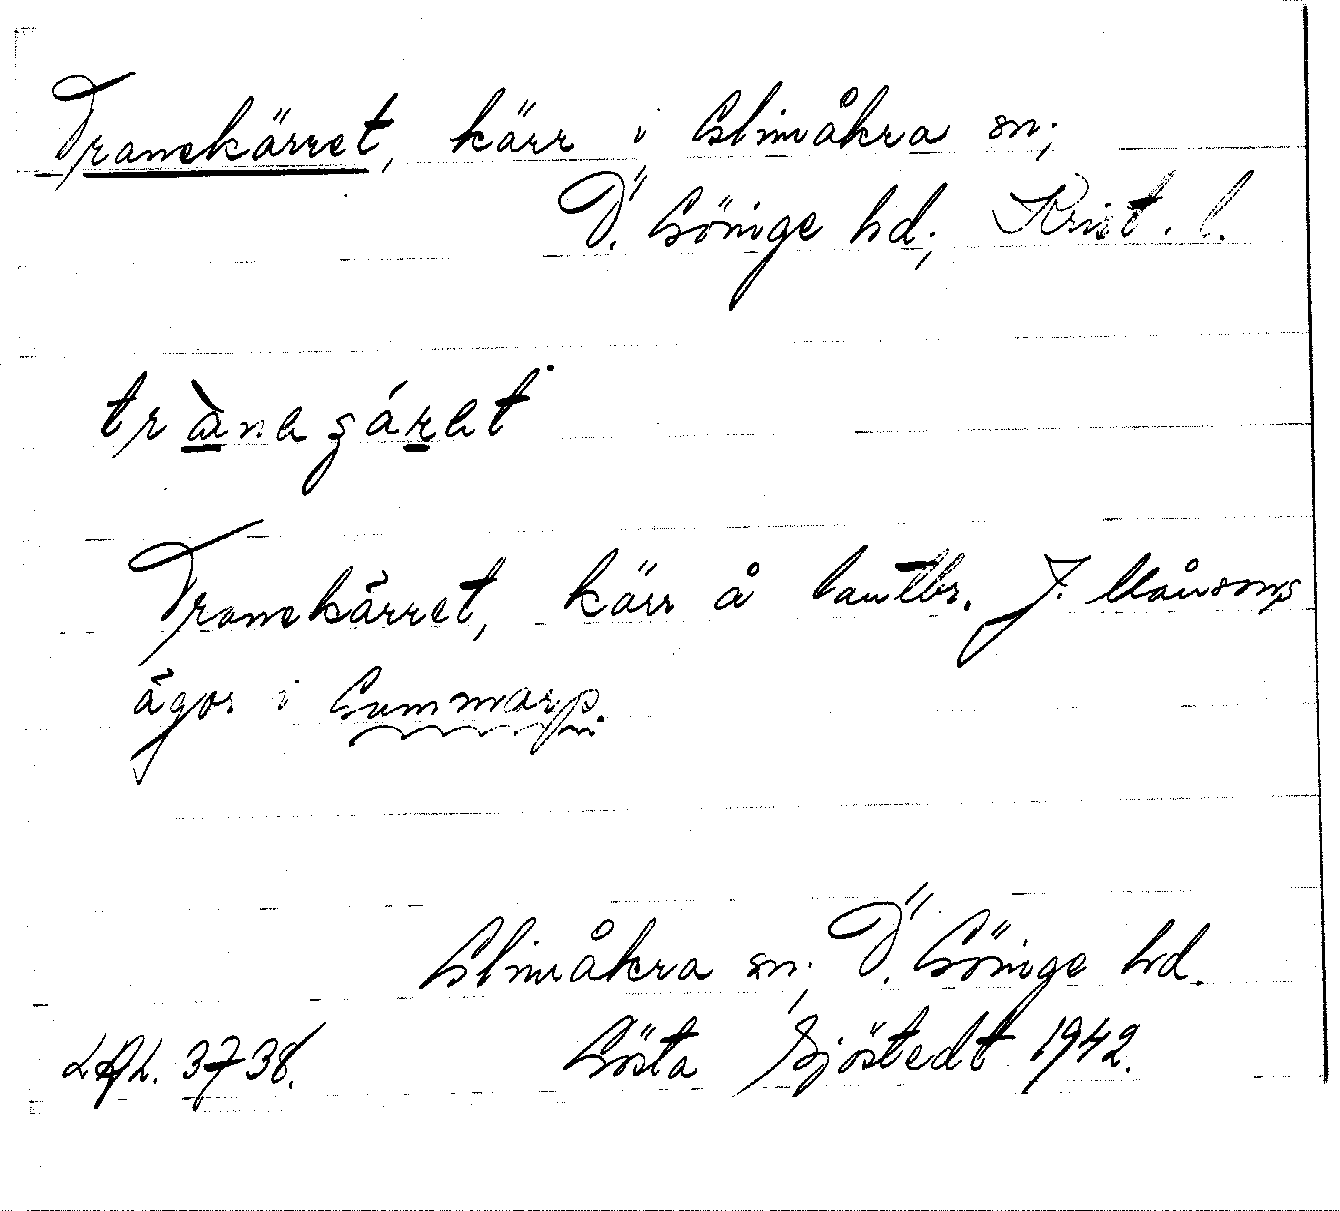 Tranekärret, kärr i Glimåkra sn;
Ö. Göinge hd; Krist. l.
tràna gáret
Tranekärret, kärr å lantbr. J. Månsons
ägor i Gummarp.
Glimåkra sn; Ö. Göinge hd.
3738. Gösta Sjöstedt 1942.